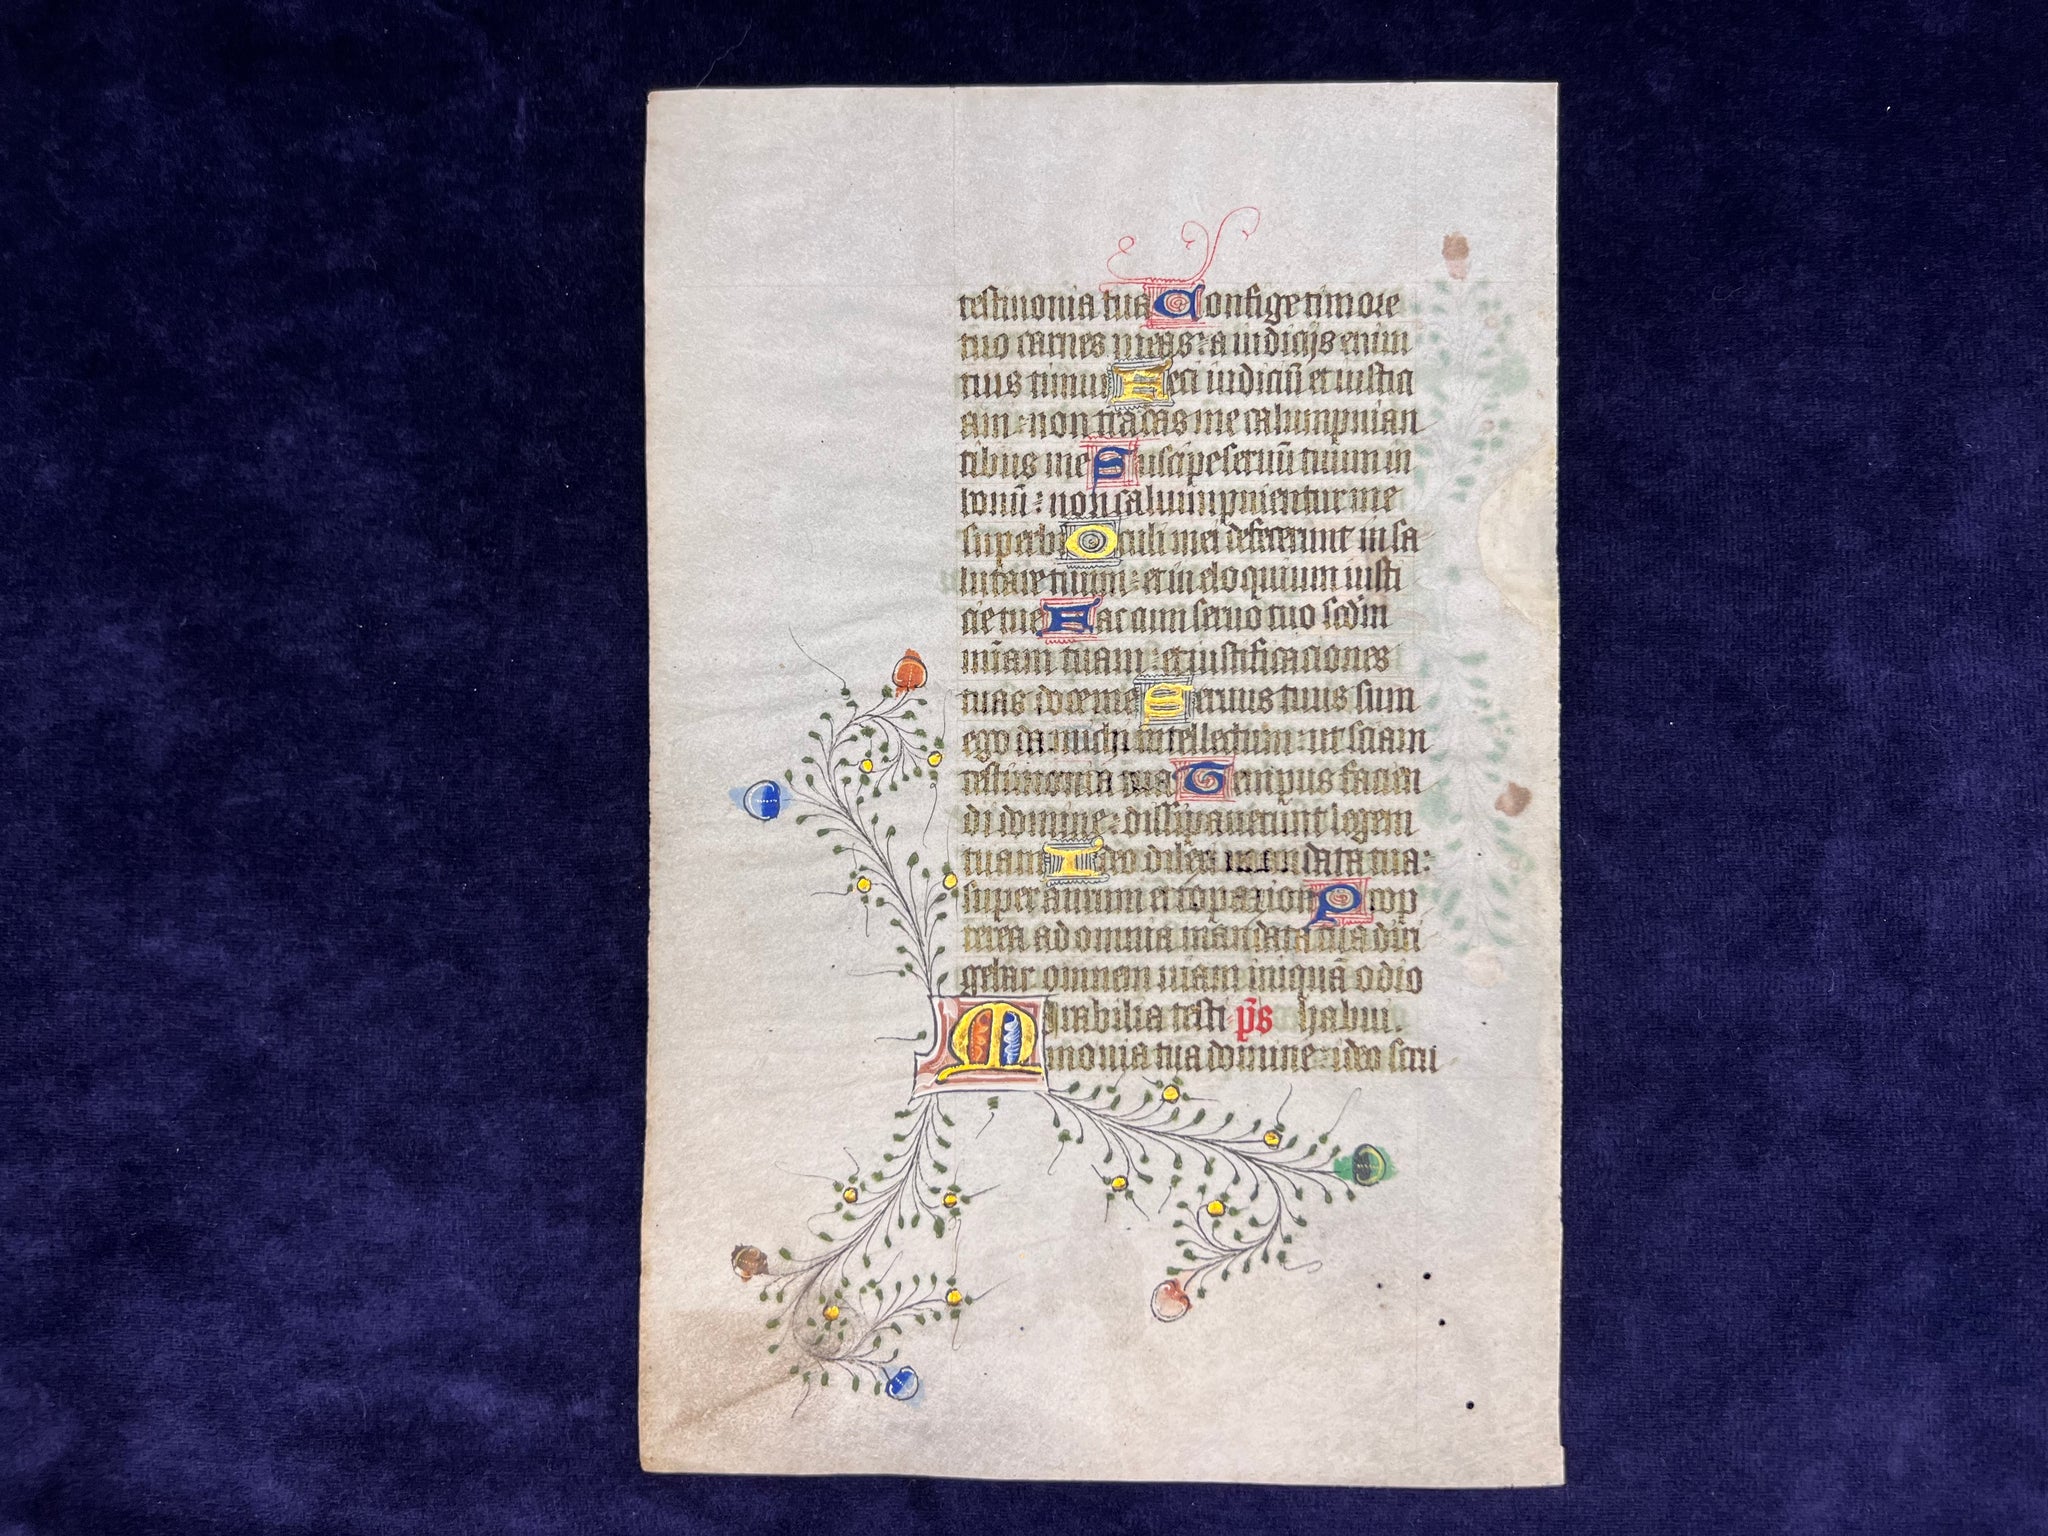 testimonia tua Confige timore
tuo carnes meas: a iudicijs enim
tuis timui Feci iudiciū et iustici
am: non tradas me calumpnian
tibus me Suscipe seruū tuum in
bonū: non calumpnientur me
superbi Oculi mei defecerunt in sa
lutare tuum: et in eloquium iusti
cie tue Fac cum seruo tuo scd'm
mīam tuam: et iustificaciones
tuas doce me Seruus tuus sum
ego da michi intellectum: ut sciam
testimonia tua Tempus facien
di domine: dissipauerunt legem
tuam Ideo dilexi mandata tua:
super aurum et topazion Prop
terea ad omnia mandata tua diri
gebar omnem uiam iniquā odio
Mirabilia testi p̄s habui.
monia tua domine: ideo scru